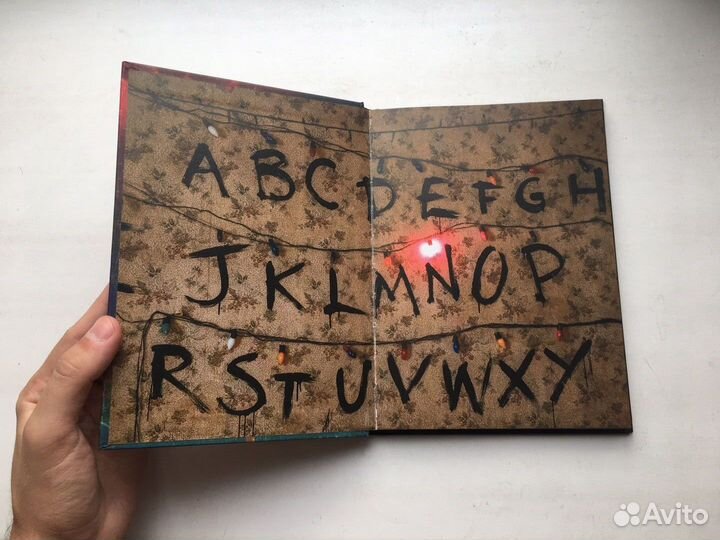 ABCDEFGH
JKLMNOP
RSTUVWXY
Avito